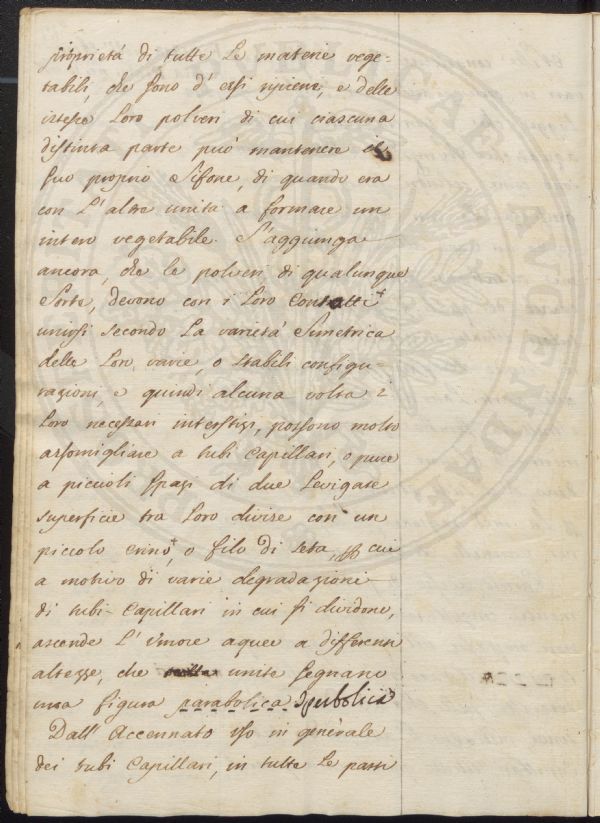 proprietá di tutte le materie vege-
tabili, che sono d' essi ripiene, e delle
istesse loro polveri di cui ciascuna
distinta parte puó mantenere il
suo proprio Sifone, di quando era
con l' altre unita a formare un
intero vegetabile. S'aggiunga
ancora, che le polveri di qualunque
Sorte, devono con i loro Contatti +
unirsi secondo la varietá Simetrica
delle loro varie, o stabili configu-
razioni, e quindi alcuna volta i
loro necessari interstizi, possono molto
assomigliare a tubi Capillari, o pure
a piccioli spazi di due levigate
superficie tra loro divise con un
piccolo crino +, o filo di seta, cui
a motivo di varie degradazioni
di tubi Capillari in cui si dividono,
ascende l' umore aqueo a differenti
altezze, che unite segnano
una figura parabolica Iperbolica
Dall' Accennato uso in generale
dei tubi Capillari, in tutte le parti
ALENDAE